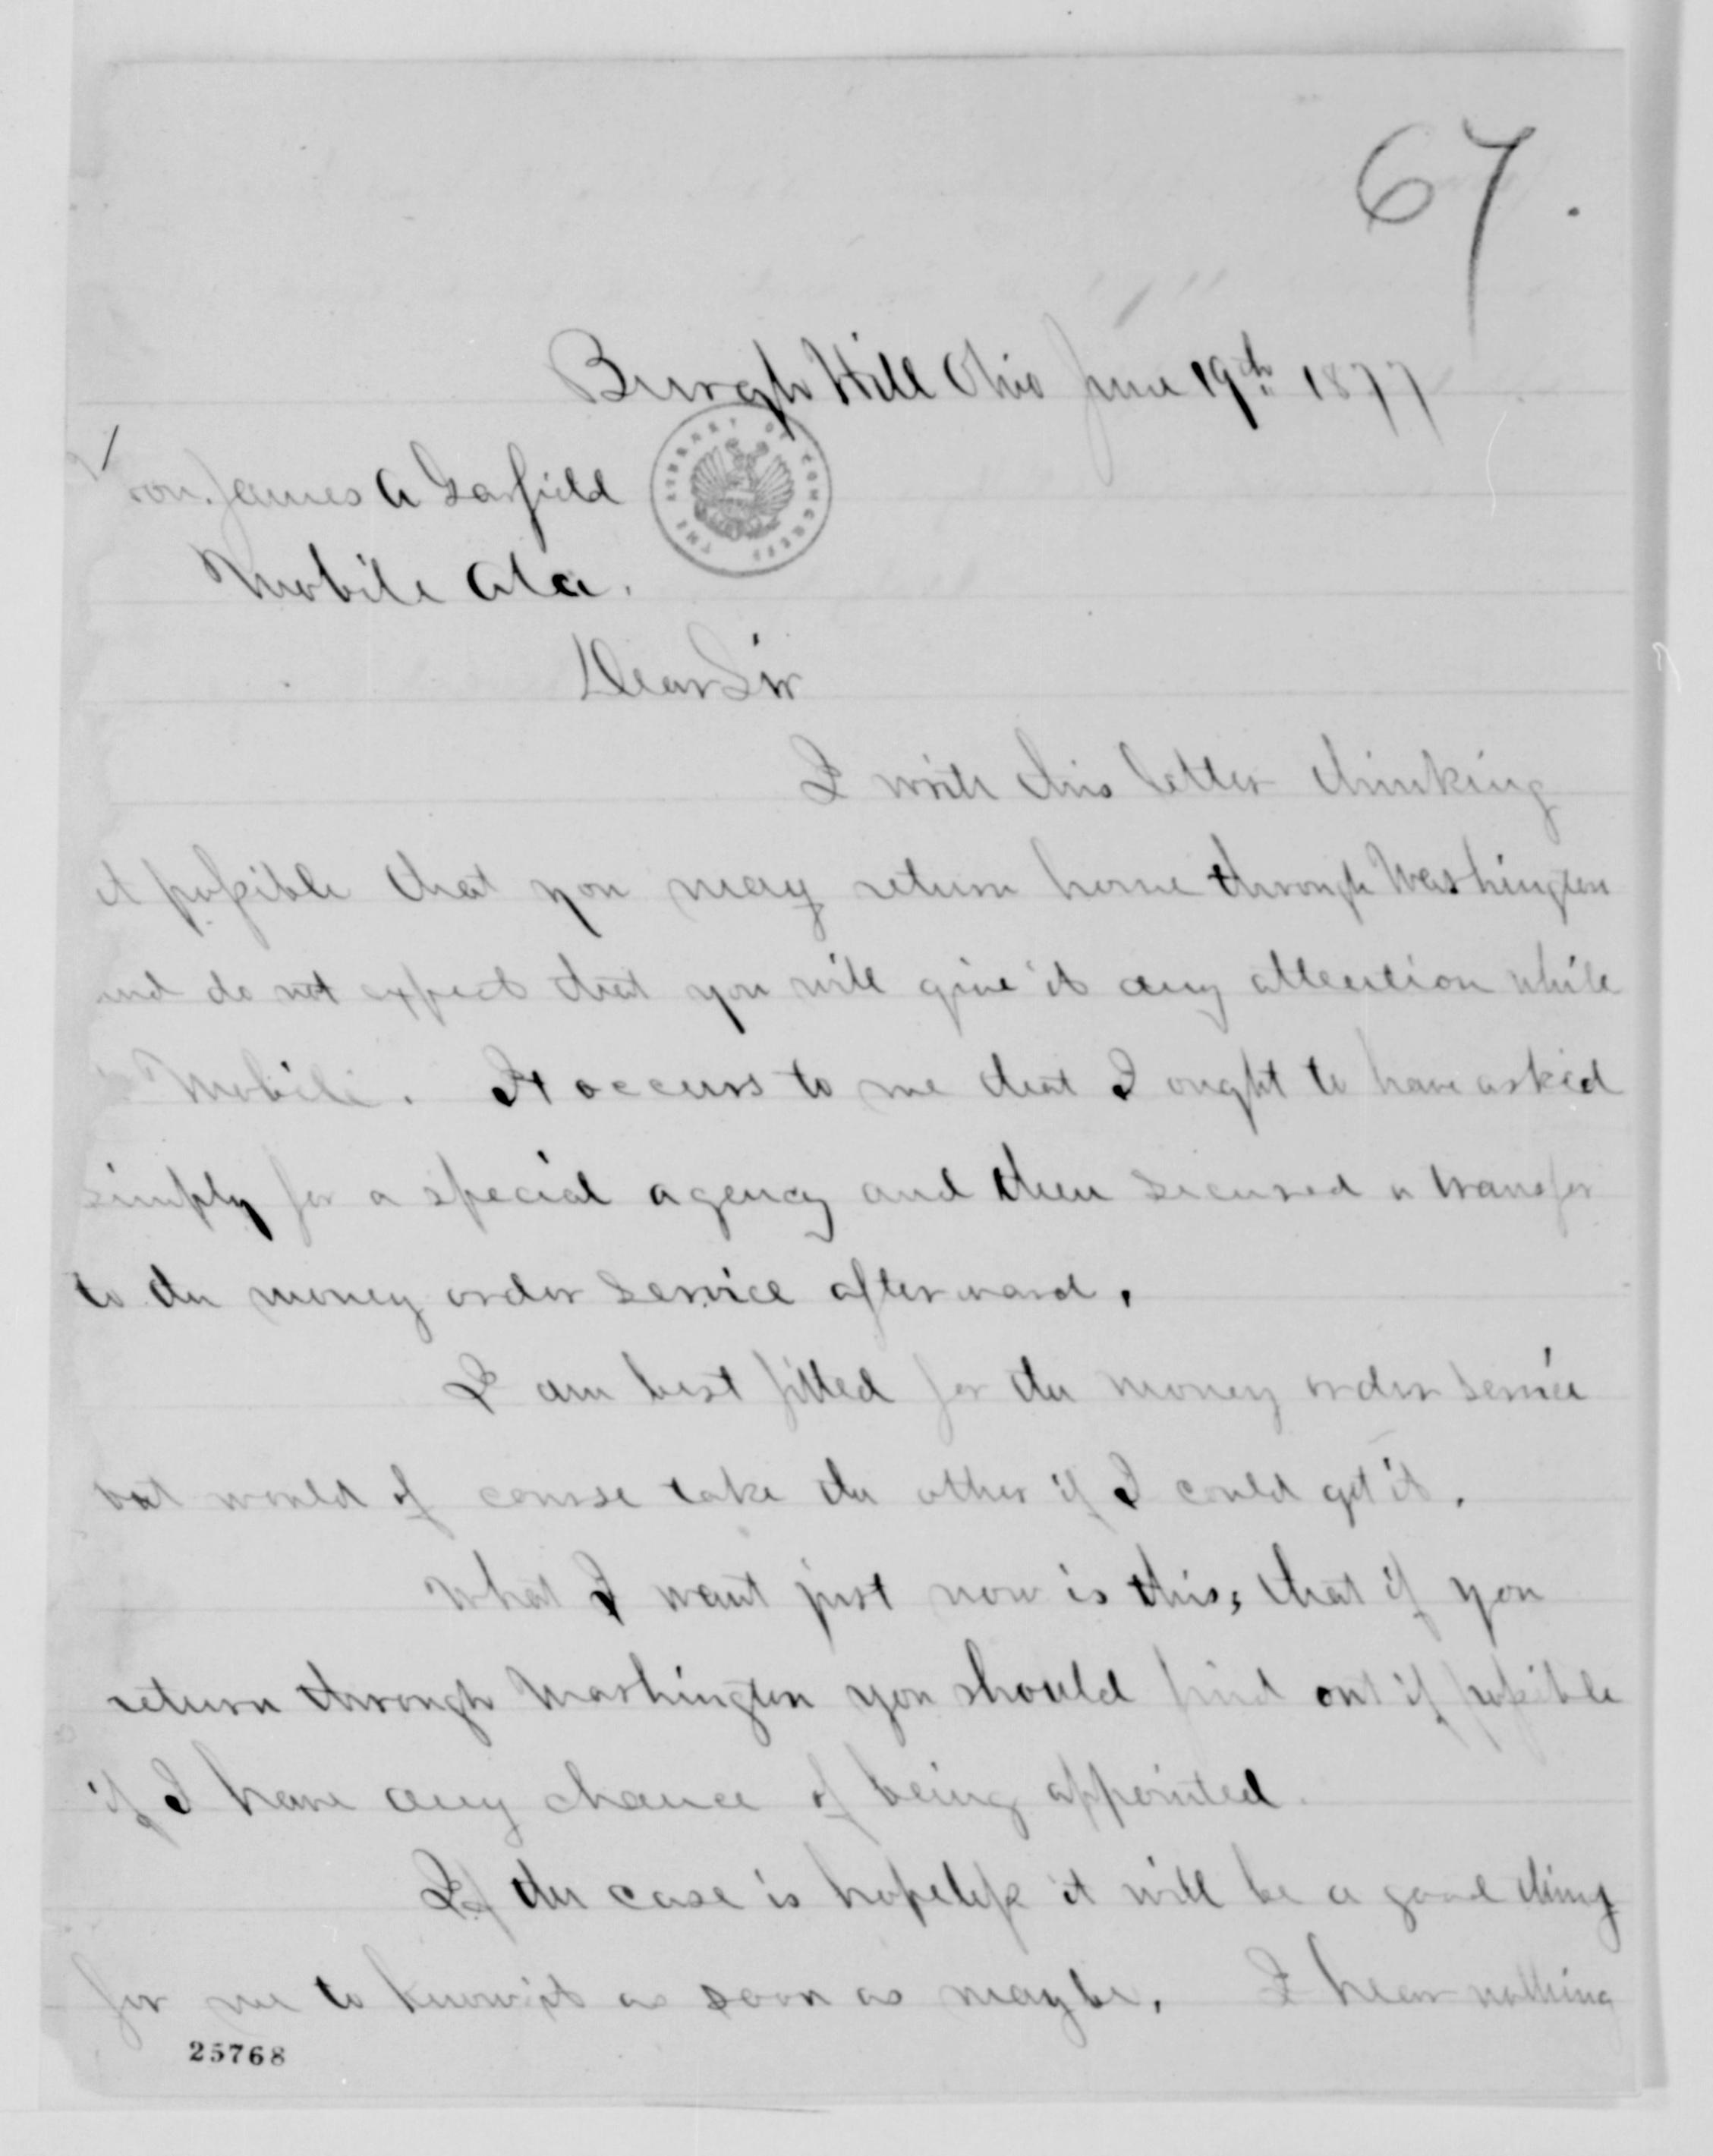 67.
Burgh Hill Ohio June 19th 1877
Hon. James A Garfield
THE LIBRARY OF CONGRESS
Mobile Ala.
Dear Sir
I write this letter thinking
it possible that you may return home through Washington
and do not expect that you will give it any attention while
in Mobile. It occurs to me that I ought to have asked
simply for a special agency and then secured a transfer
to the money order service afterward.
I am best fitted for the money order service
but would of course take the other if I could get it.
What I want just now is this; that if you
return through Washington you should find out if possible
if I have any chance of being appointed.
If the case is hopeless it will be a good thing
for me to know it as soon as maybe. I hear nothing
25768